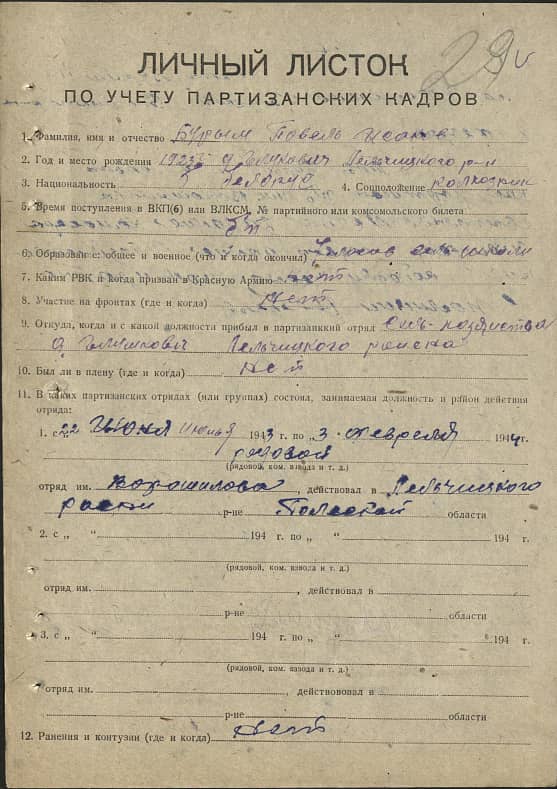 29
ЛИЧНЫЙ ЛИСТОК
ПО УЧЕТУ ПАРТИЗАНСКИХ КАДРОВ
1. Фамилия, имя и отчество Бурым Павель
2. Год и место рождения 1923 Лельчицкого р-н
3. Национальность 4. Соцположение колхозник
5. Время поступления в ВКП(б) или ВЛКСМ, № партийного или комсомольского билета
б/п
6. Образование: общее и военное (что и когда окончил)
7. Каким РВК и когда призван в Красную Армию нет
8. Участие на фронтах (где и когда) Нет
9. Откуда, когда и с какой должности прибыл в партизанкий отряд
Лельчицкого района
10. Был ли в плену (где и когда) Нет
11. В каких партизанских отрядах (или группах) состоял, занимаемая должность и район действия
отряда:
1. с „22 Июня 1943 г. по „3 февраля 1944 г.
рядовой
(рядовой, ком. взвода и т. д.)
отряд им. Ворошилова, действовал в Лельчицкого
р-не Полеской области
2. с „ “ 194 г. по „ “ 194 г.
(рядовой, ком. взвода и т. д.)
отряд им. , действовал в
р-не области
3. с „ “ 194 г. по „ “ 194 г.
(рядовой, ком. взвода и т. д.)
отряд им. , действововал в
р-не области
12. Ранения и контузии (где и когда) Нет